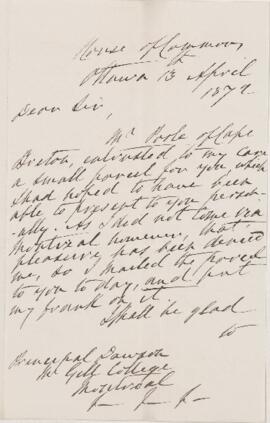 House of Commons,
Ottawa 13th April
1872
Dear Sir,
Mr Poole of Cape
Breton, entrusted to my care
a small parcel for you, which
I had hoped to have been
able to present to you person-
-ally. As I did not come via
Montreal however, that
pleasure has been denied
me, so I mailed the parcel
to you to day, and put
my frank on it.
I shall be glad
to
Principal Dawson
McGill College
Montreal